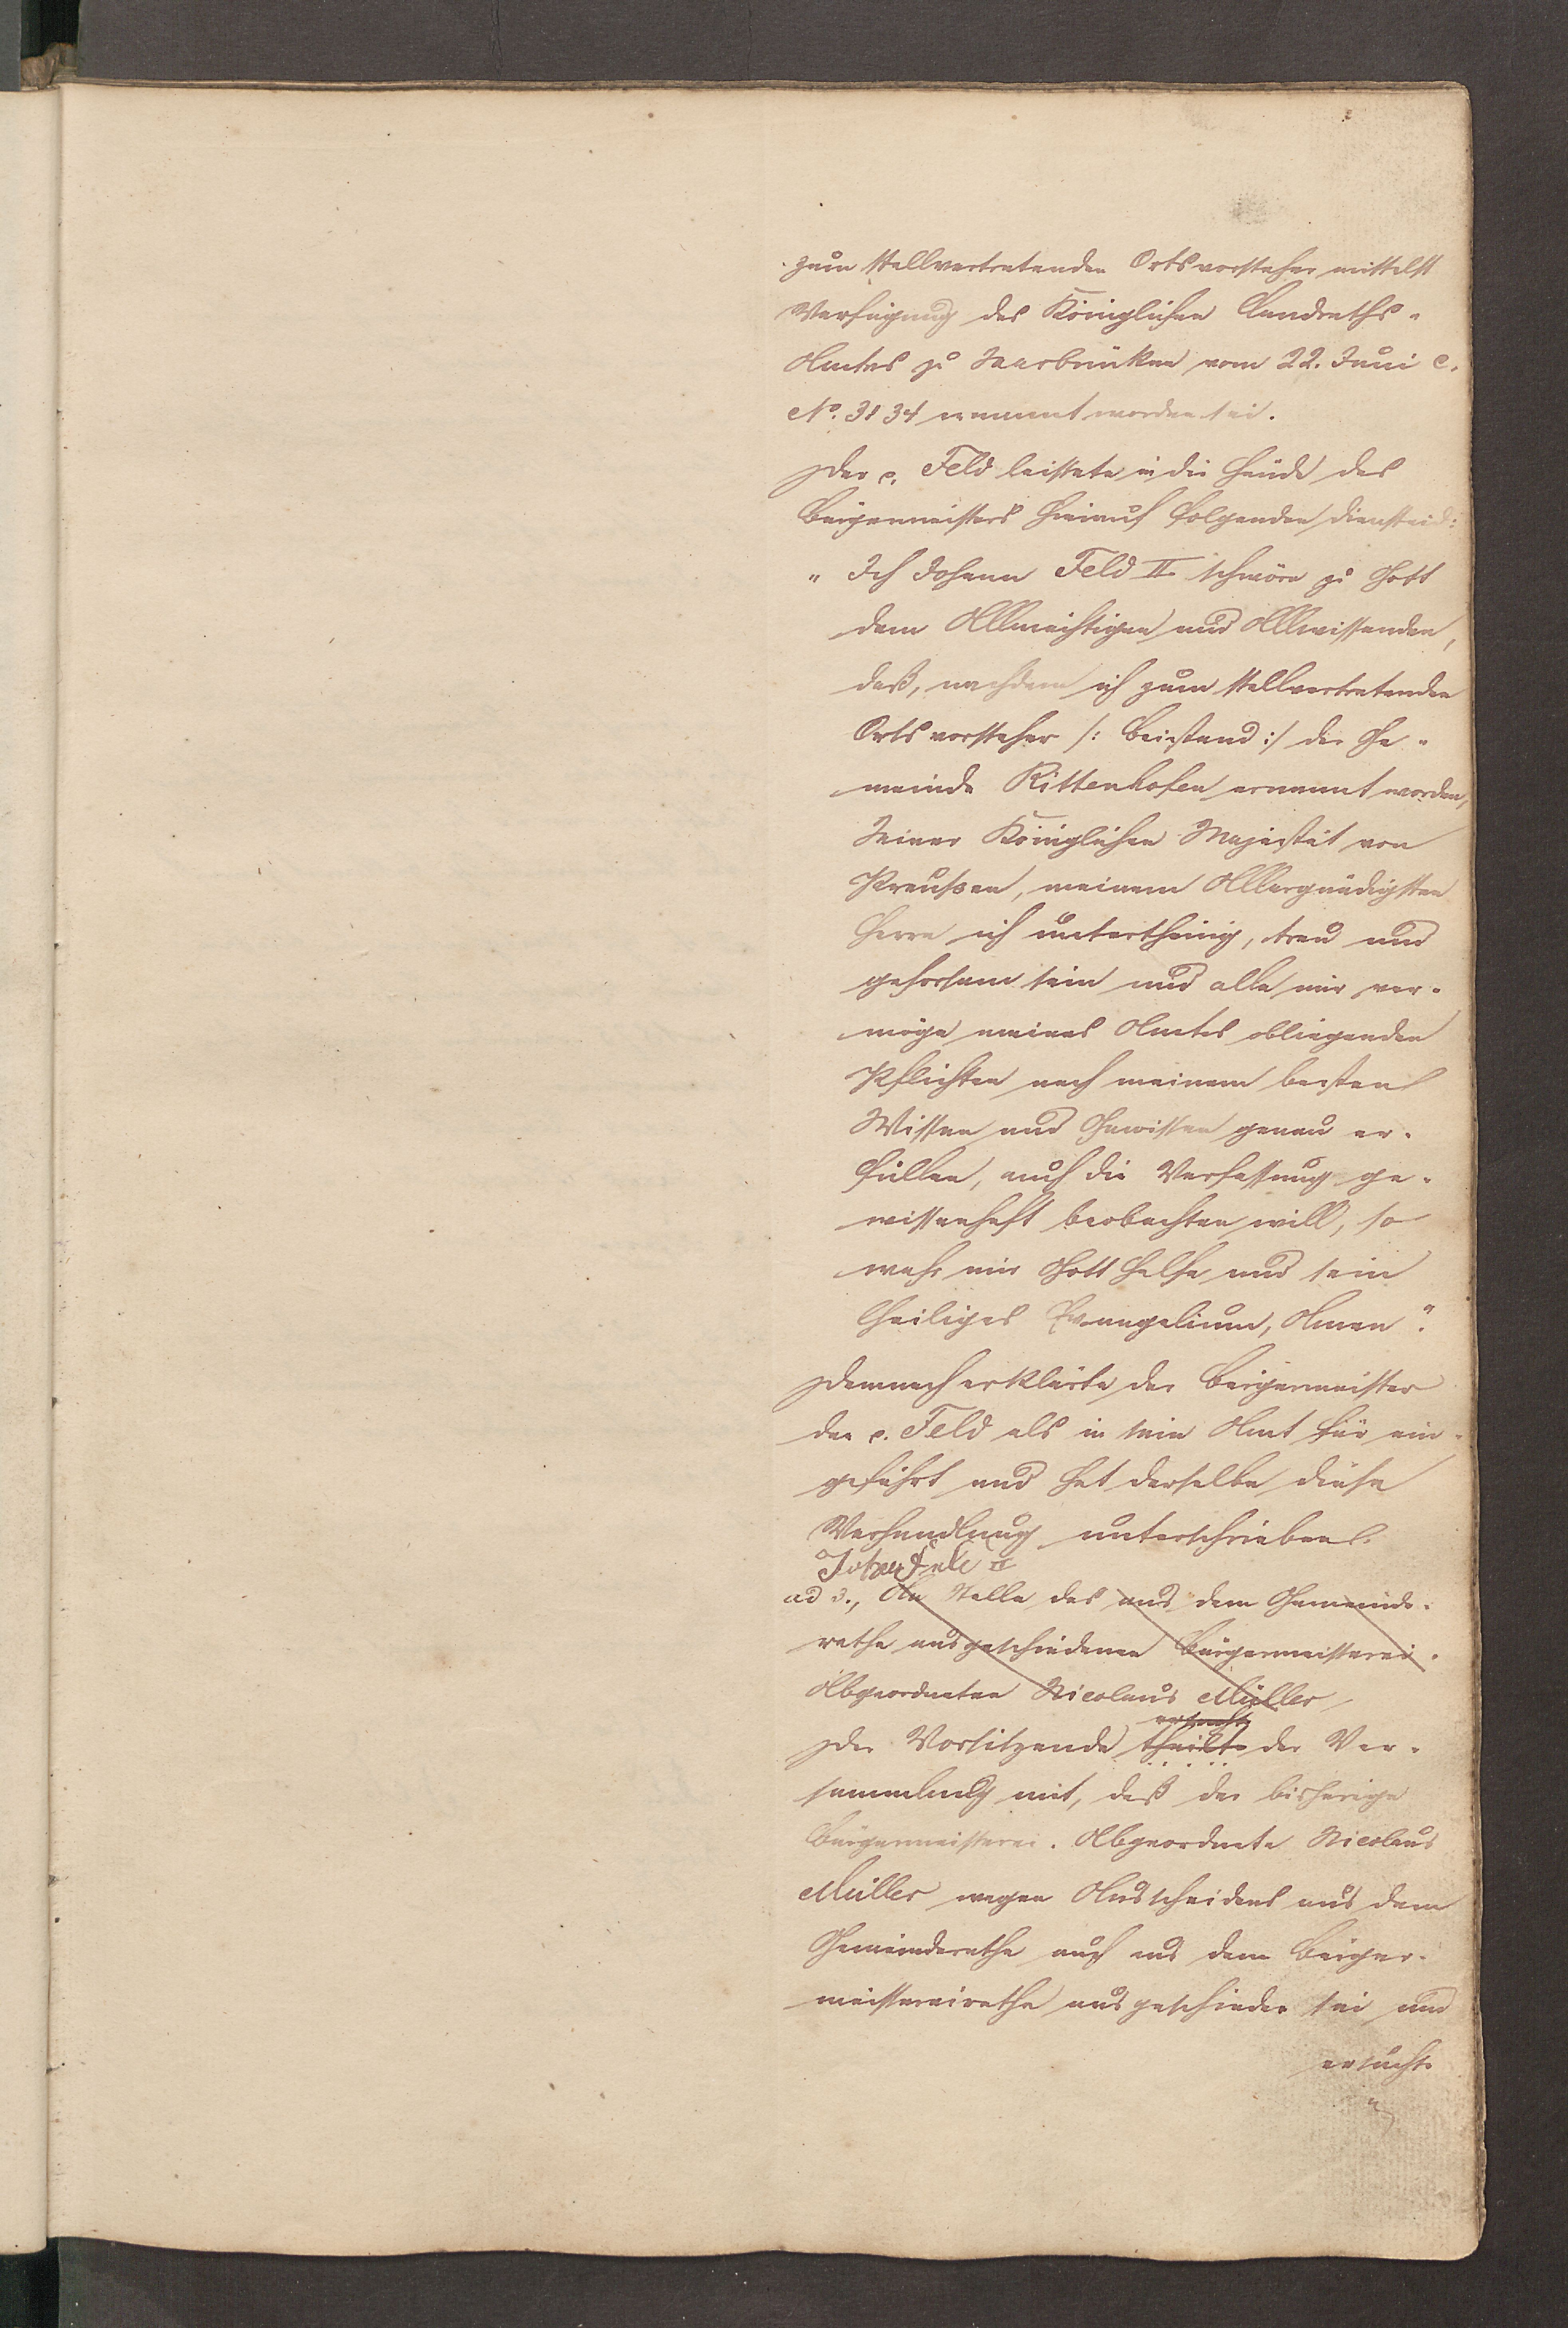 zum stellvertretenden Ortsvorsteher mittelst
Verfügung des Königlichen Landraths-
Amtes zu Saarbrücken vom 22. Juni c.
No. 3134 ernannt worden sei.
Der p. Feld leistete in die Hände des
Bürgermeisters hierauf folgenden Diensteid:
" Ich Johann Feld II schwöre zu Gott
dem Allmächtigen und Allwissenden,
daß, nachdem ich zum stellvertretenden
Ortsvorsteher /: Beistand :/ der Ge-
meinde Rittenhofen ernannt worden,
Seiner Königlichen Majestät von
Preußen, meinem Allergnädigsten
Herrn ich unterthänig, treu und
gehorsam sein und alle mir ver-
möge meines Amtes obliegenden
Pflichten nach meinem besten
Wissen und Gewissen genau er-
füllen, auch die Verfassung ge-
wissenhaft beobachten will, so
wahr mir Gott helfe und sein
heiliges Evangelium, Amen".
Demnach erklärte der Bürgermeister
den p. Feld als in sein Amt für ein-
geführt und hat derselbe diese
Verhandlung unterschrieben.
Johan Feld II
ad 3., An Stelle des aus dem Gemeinde-
rathe ausgeschiedenen Bürgermeisterei-
Abgeordneten Nicolaus Müller
ersucht
Der Vorsitzende theilte der Ver-
sammlung mit, daß der bisherige
Bürgermeisterei-Abgeordnete Nicolaus
Müller wegen Ausscheidens aus dem
Gemeinderathe auch aus dem Bürger-
meistereirathe ausgeschieden sei und
ersuchte